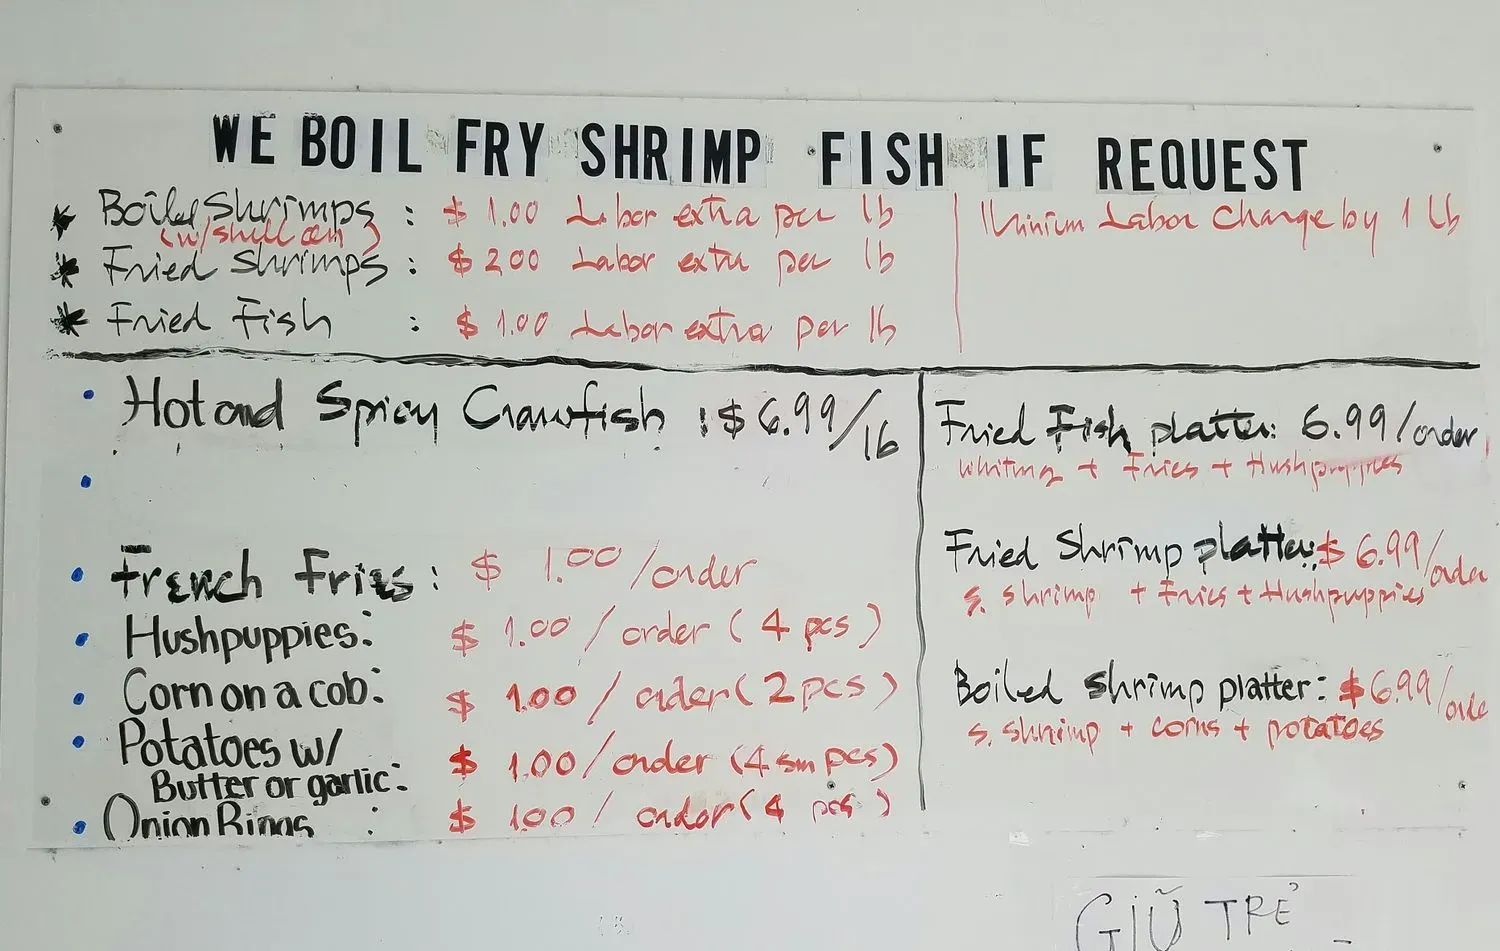 WE BOIL FRY SHRIMP FISH IF REQUEST
Boiled Shrimps : $ 1.00 Labor extra per lb
(w/shell on)
Fried Shrimps : $ 2.00 Labor extra per lb
Fried Fish : $ 1.00 Labor extra per lb
Minium Labor Charge by 1 lb
Hot and Spicy Crawfish : $ 6.99/lb
French Fries : $ 1.00 /order
Hushpuppies: $ 1.00 / order ( 4 pcs )
Corn on a cob: $ 1.00 / order ( 2 pcs )
Potatoes w/
Butter or garlic: $ 1.00 / order (4 sm pcs)
Onion Rings : $ 1.00 / order ( 4 pcs )
Fried Fish platter: 6.99/order
Whiting + Fries + Hushpuppies
Fried Shrimp platter: $ 6.99/order
s. shrimp + Fries + Hushpuppies
Boiled shrimp platter: $ 6.99/orde
s. shrimp + corns + potatoes
GIỮ TRẺ